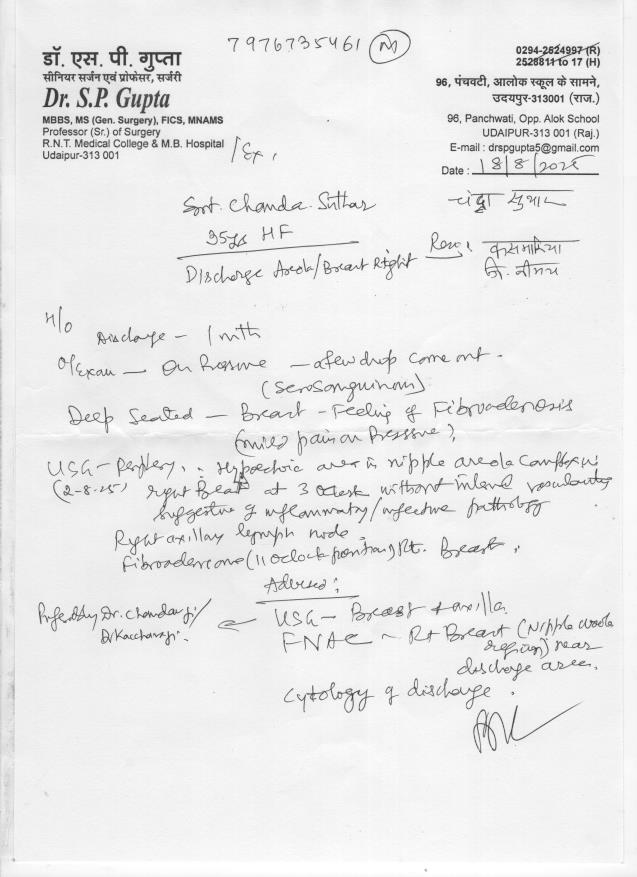 7976735461 (M)
डॉ. एस. पी. गुप्ता
सीनियर सर्जन एवं प्रोफेसर, सर्जरी
Dr. S.P. Gupta
MBBS, MS (Gen. Surgery), FICS, MNAMS
Professor (Sr.) of Surgery
R.N.T. Medical College & M.B. Hospital
Udaipur-313 001
/Ex,
0294-2524997 (R)
2528811 to 17 (H)
96, पंचवटी, आलोक स्कूल के सामने,
उदयपुर-313001 (राज.)
96, Panchwati, Opp. Alok School
UDAIPUR-313 001 (Raj.)
E-mail : drspgupta5@gmail.com
Date : 18/8/2025
Smt. Chanda Suthar
चंद्रा सुथार
35ys HF
Discharge Areola/Breast Right
H/o Discharge - 1 mth
O/Exam - On Pressure - a few drop come out -
(Serosanguinous)
Deep Seated - Breast - Feeling of Fibroadenosis
(mild pain on Pressure),
USG - Hypoechoic area in nipple areola complex in
(2-8-25) right Breast at 3 Oclock without inland vascularity
suggestive of inflammatory/infective pathology
Right axillary lymph node.
Fibroadenoma (11 oclock position) Rt. Breast.
Advised:
USG - Breast + axilla
FNAC - Rt Breast (Nipple areola
region) near
discharge area.
Cytology of discharge.